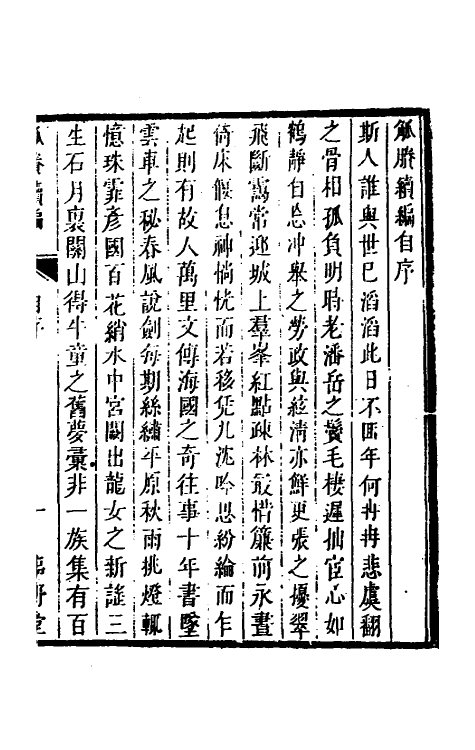 觚賸續編自序
斯人誰與世已滔滔此日不再年何冉冉悲虞翻
之骨相孤負明時老潘岳之鬢毛棲遲仙宦心如
鶴靜自忘冲舉之勞政與絃淸亦鮮更張之擾翠
飛斷靄常迎城上羣峯紅點疎林最惜簾前永晝
倚床偃息神惝恍而若移凭几沈吟思紛綸而乍
起則有故人萬里文傳海國之奇往事十年書墜
雲車之秘春風說劍每期絲繡平原秋雨挑燈輒
憶珠霏彥國百花綃水中宮闕出龍女之新謠三
生石月裏關山得牛童之舊夢彙非一族集有百
觚賸續編
自序
一
臨野堂